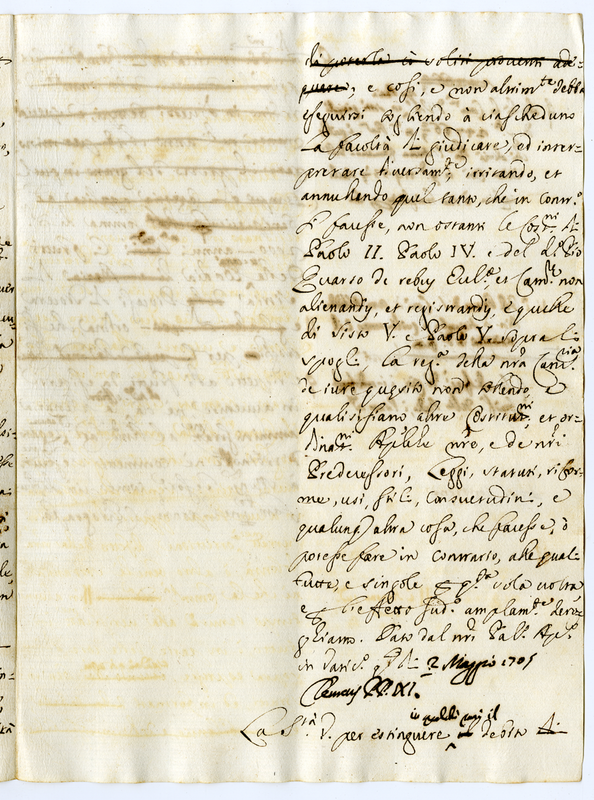 di poterla in soliti proventi ade-
quare, e così, e non altrim.te debba
eseguirsi togliendo à ciascheduno
la facoltà di giudicare, ed inter-
pretare diversam.te, irritando, et
annullando quel tanto, che in contr.o
si facesse, non ostanti le Cost.ni di
Paolo II. Paolo IV. e del d.o Pio
Quarto de rebus Eccl.e et Cam.re non
alienandis, et registrandis, e quelle
di Sisto V. e Paolo V. sopra li
spogli. La reg.a della n'ra Canc.ria
de iure quesito non tollendo, e
qualisisiano altre Costitut.ni, et or-
dinat.ni Ap'liche n're, e de n'ri
Predecessori, Leggi, statuti, rifor-
me, usi, stili, consuetudini, e
qualunq. altra cosa, che facesse, ò
potesse fare in contrario, alle quali
tutte, e singole p. q.sta sola volta
e p. l'effetto sud.o amplam.te dero-
ghiamo. Dato dal n'ro Pal. Ap.o
in Vatic.o q.sto di 2 Maggio 1705
Clemens PP. XI.
in quella mj il
La S.tà V. per estinguere debito di